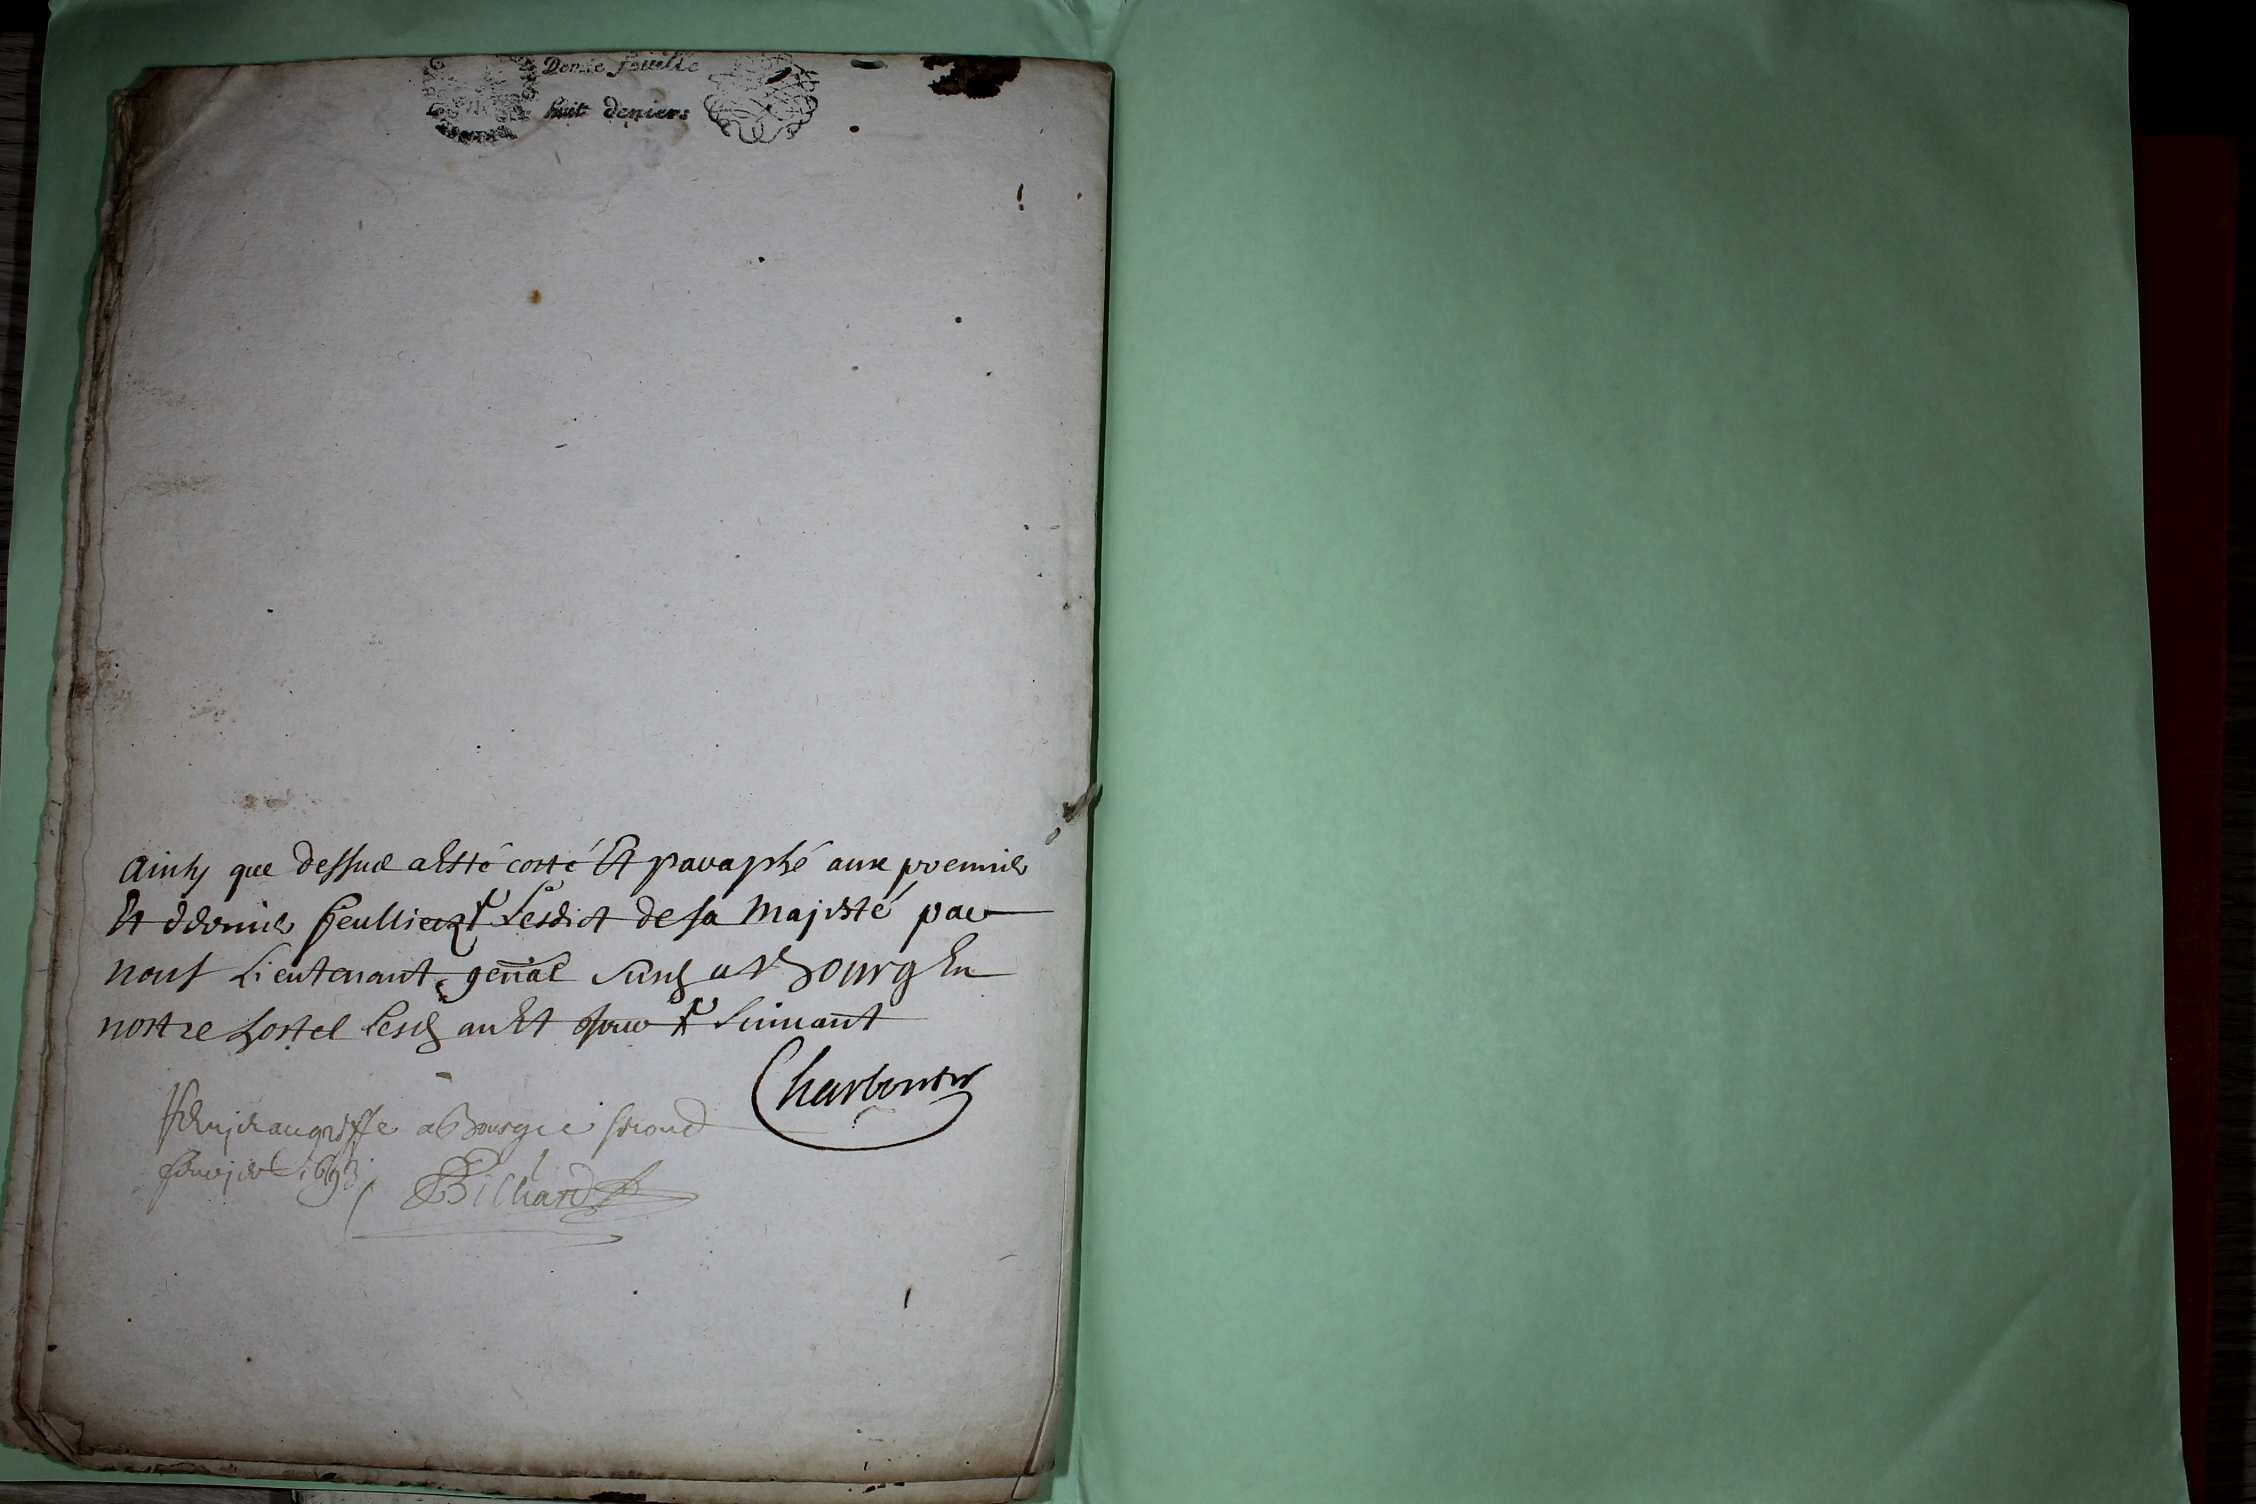 Demie feuille
huit deniers
ainsy que dessus a Esté costé Et paraphé aux premier
Et dernier feuillietz sr Lesdict de sa Majesté par
nous Lieutenant genal susd a Bourg En
nostre hostel Lesd an Et jour sr suivant
Charbonier
a Bourg ce second
1693 Bichard